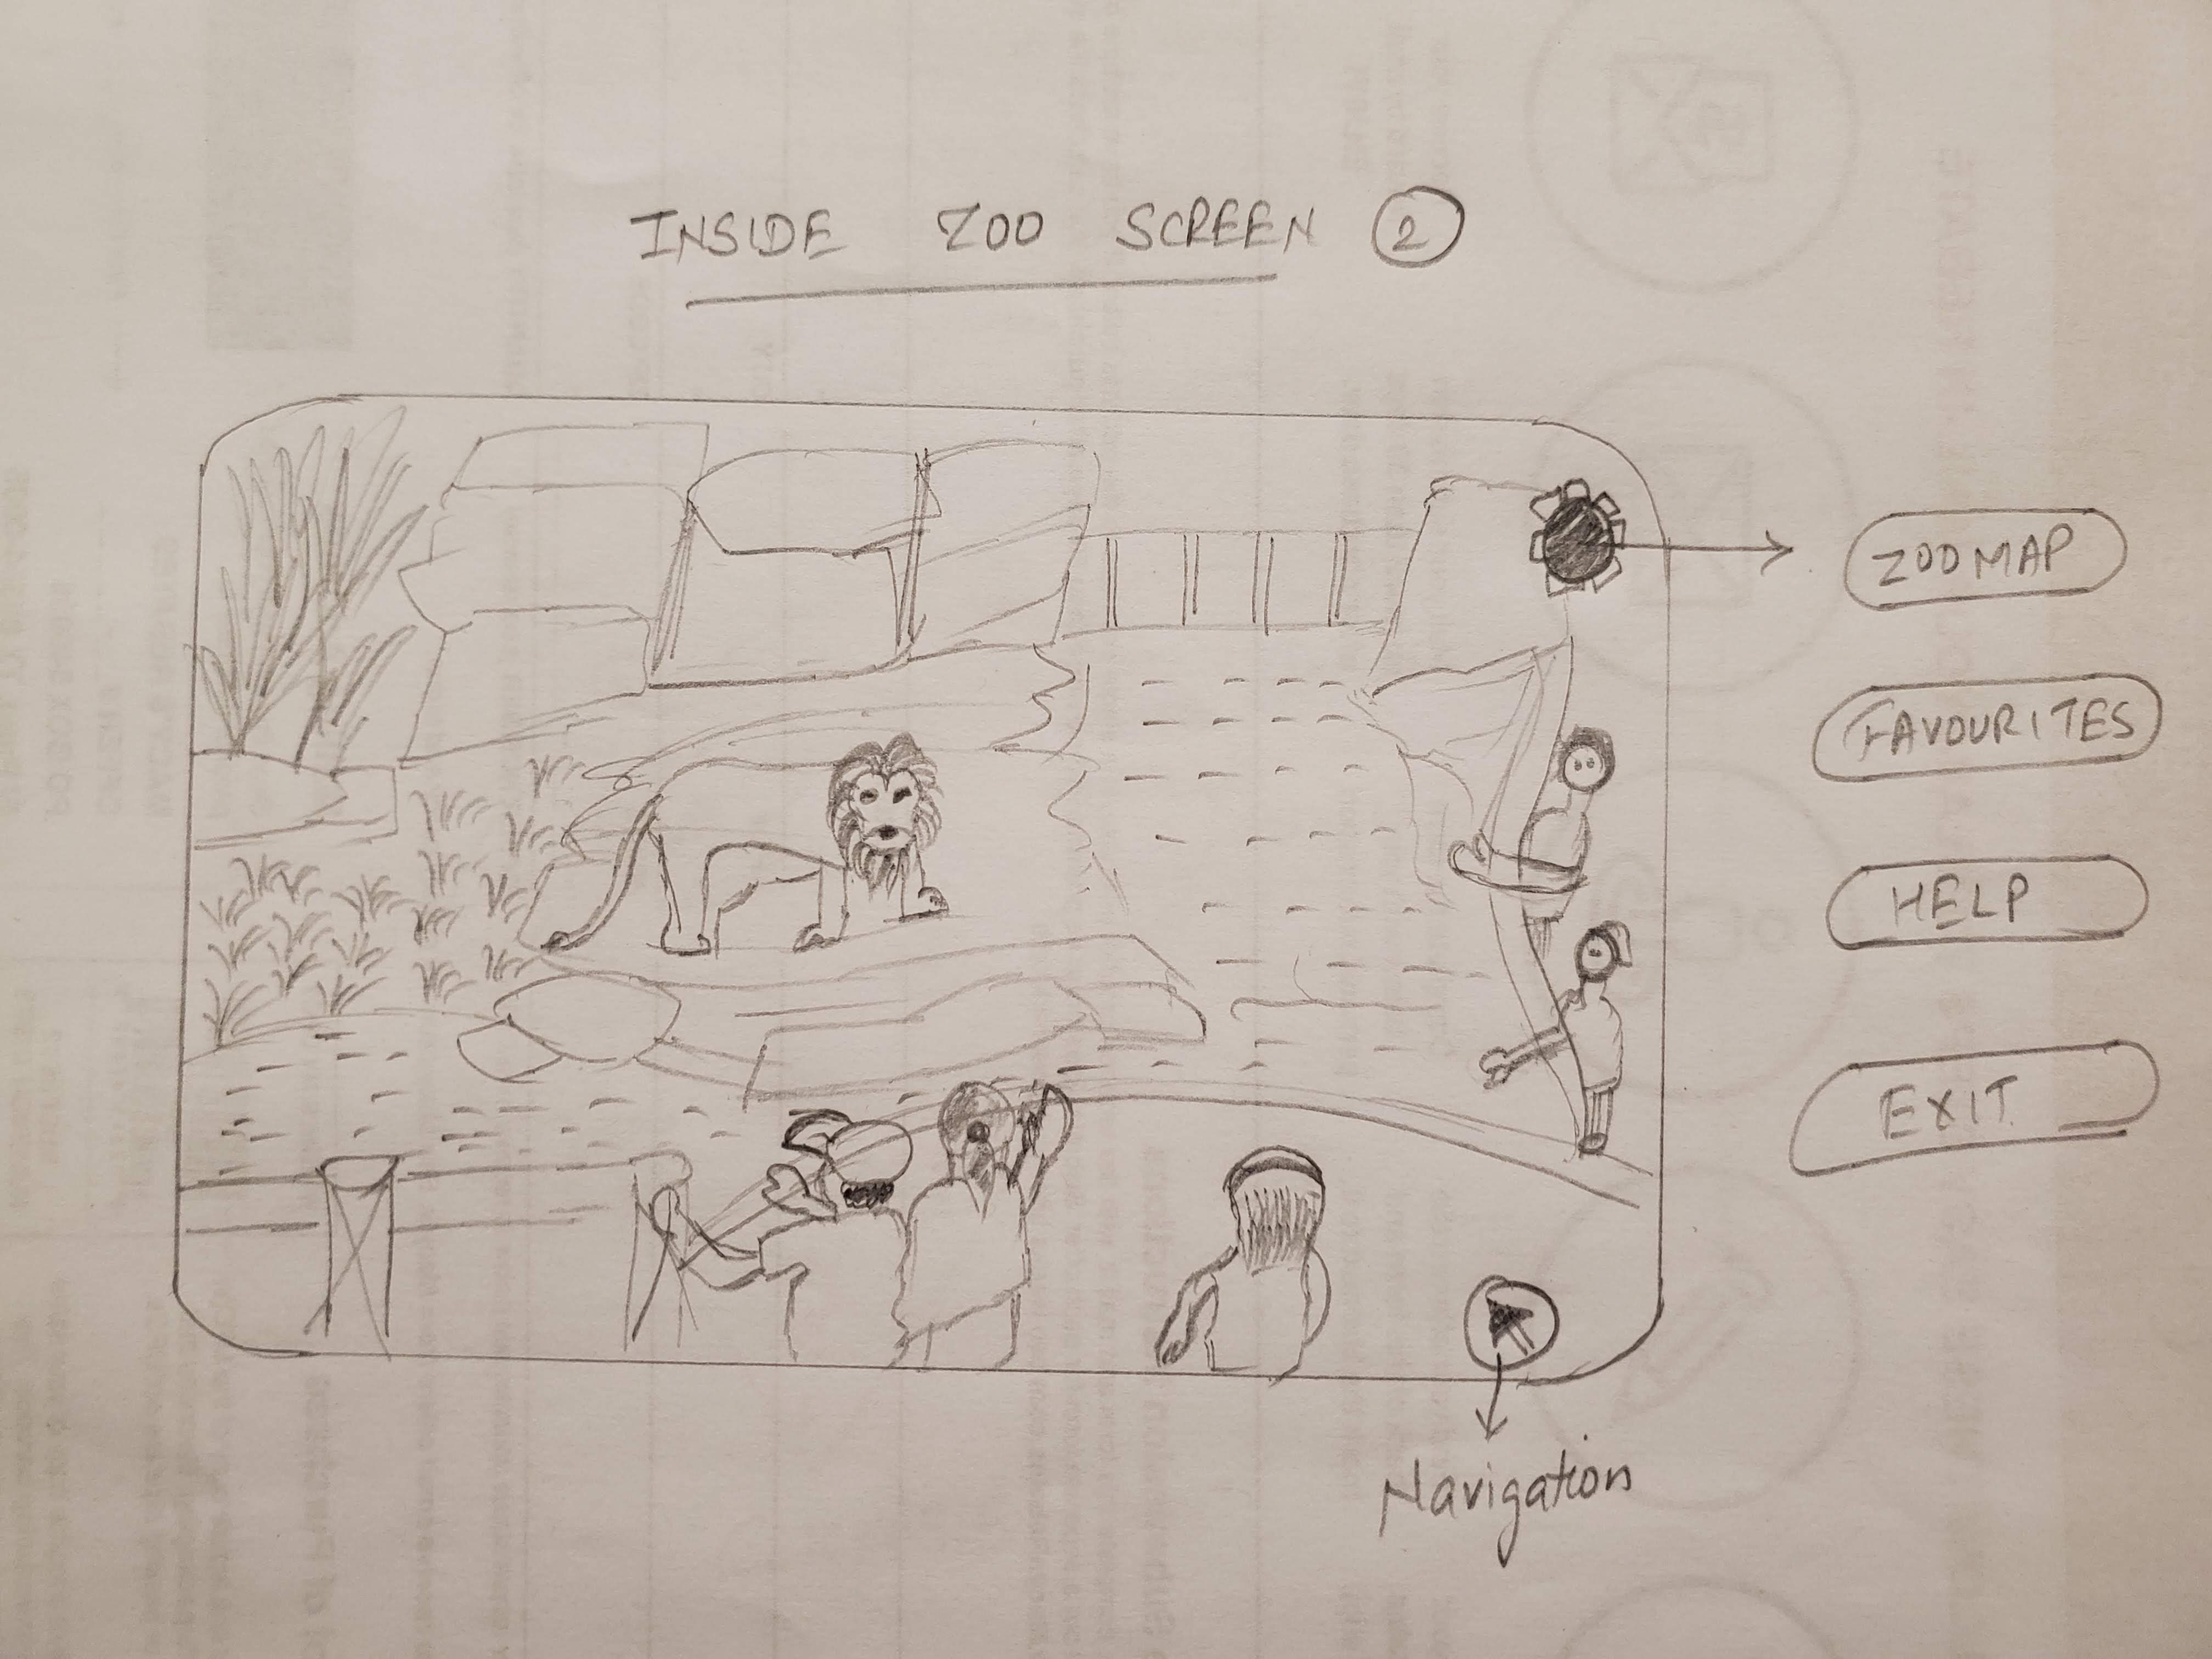 INSIDE ZOO SCREEN 2
ZOO MAP
FAVOURITES
HELP
EXIT
Navigation